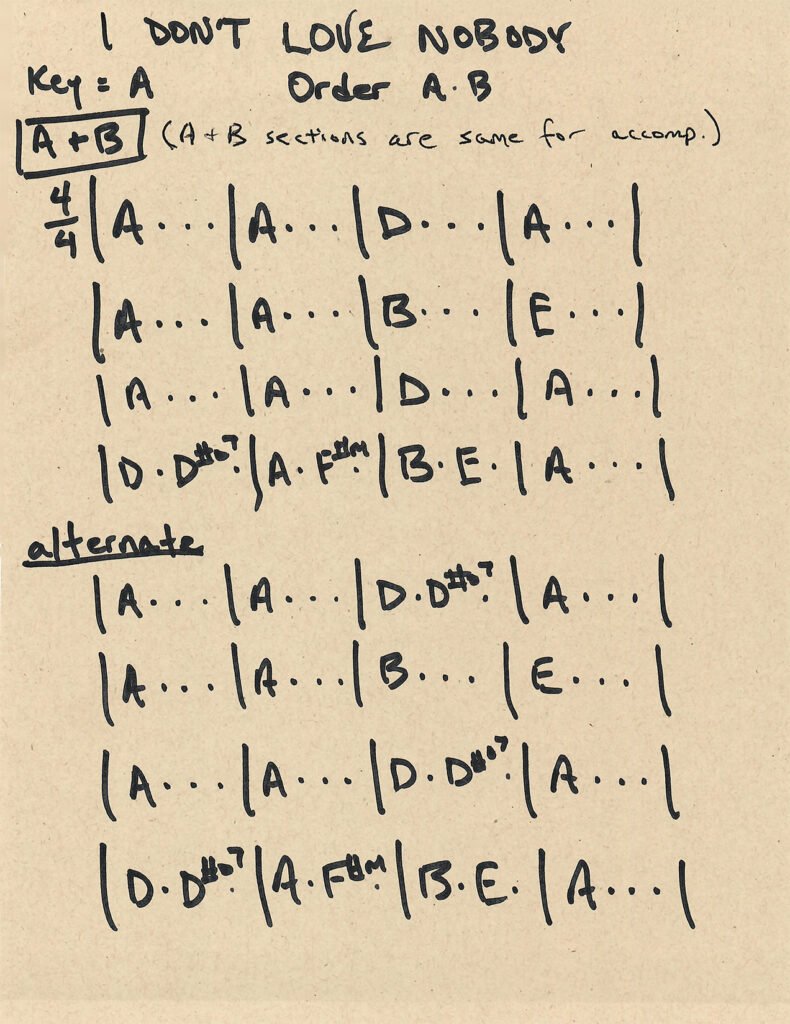 I DON'T LOVE NOBODY
Key = A Order A·B
A + B (A + B sections are same for accomp.)
4/4 | A · · · | A · · · | D · · · | A · · · |
| A · · · | A · · · | B · · · | E · · · |
| A · · · | A · · · | D · · · | A · · · |
| D · D#o7 · | A · F#m · | B · E · | A · · · |
alternate
| A · · · | A · · · | D · D#o7 · | A · · · |
| A · · · | A · · · | B · · · | E · · · |
| A · · · | A · · · | D · D#o7 · | A · · · |
| D · D#o7 · | A · F#m · | B · E · | A · · · |